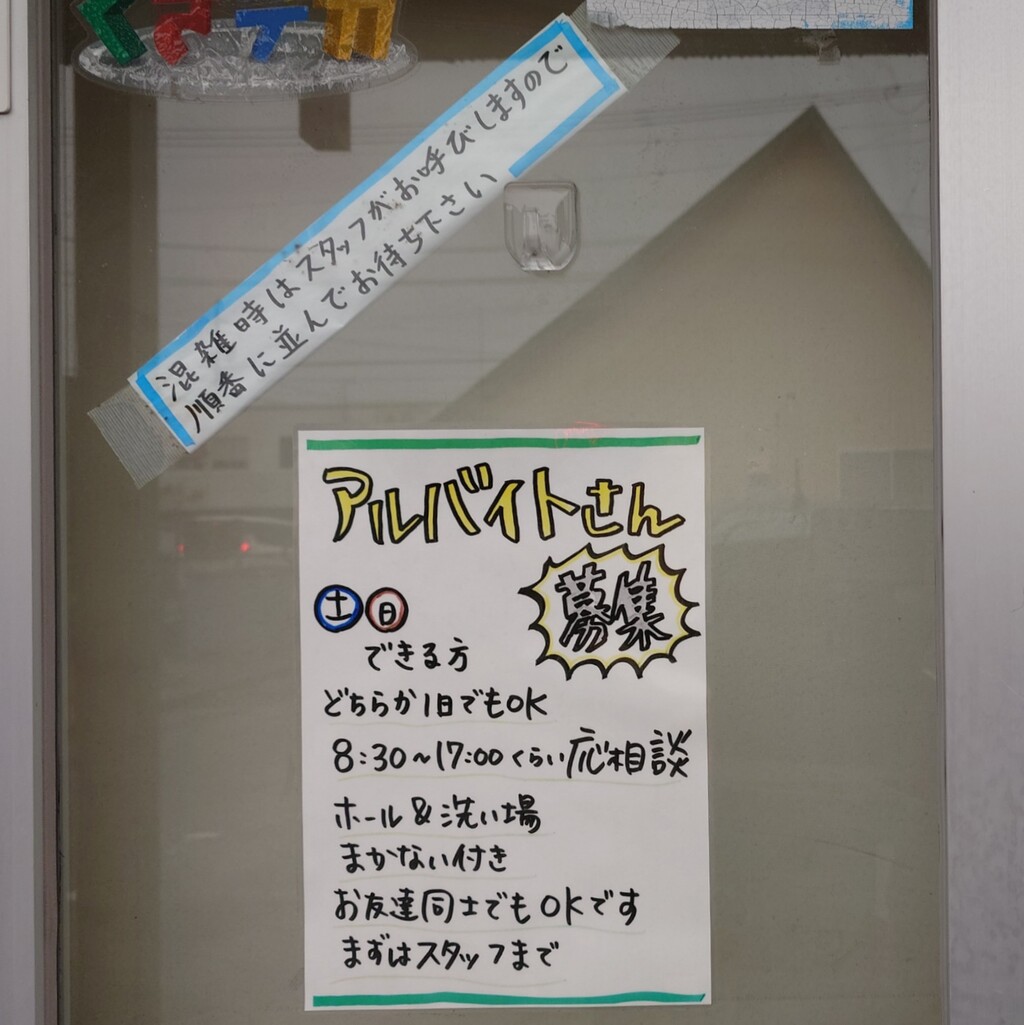 混雑時はスタッフがお呼びしますので
順番に並んでお待ち下さい
アルバイトさん
募集
土日
できる方
どちらか1日でもOK
8:30~17:00くらい応相談
ホール&洗い場
まかない付き
お友達同士でもOKです
まずはスタッフまで